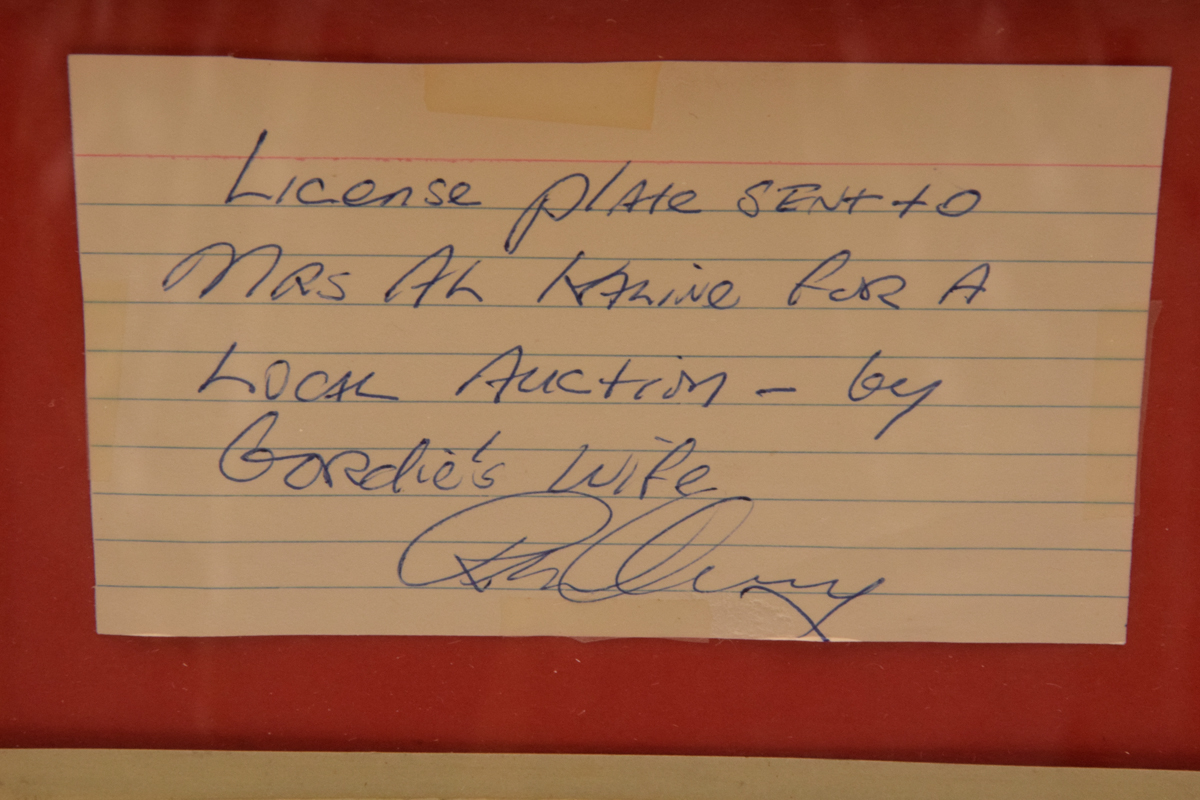 License plate sent to
Mrs Al Kaline for A
Local Auction - by
Gordie's Wife